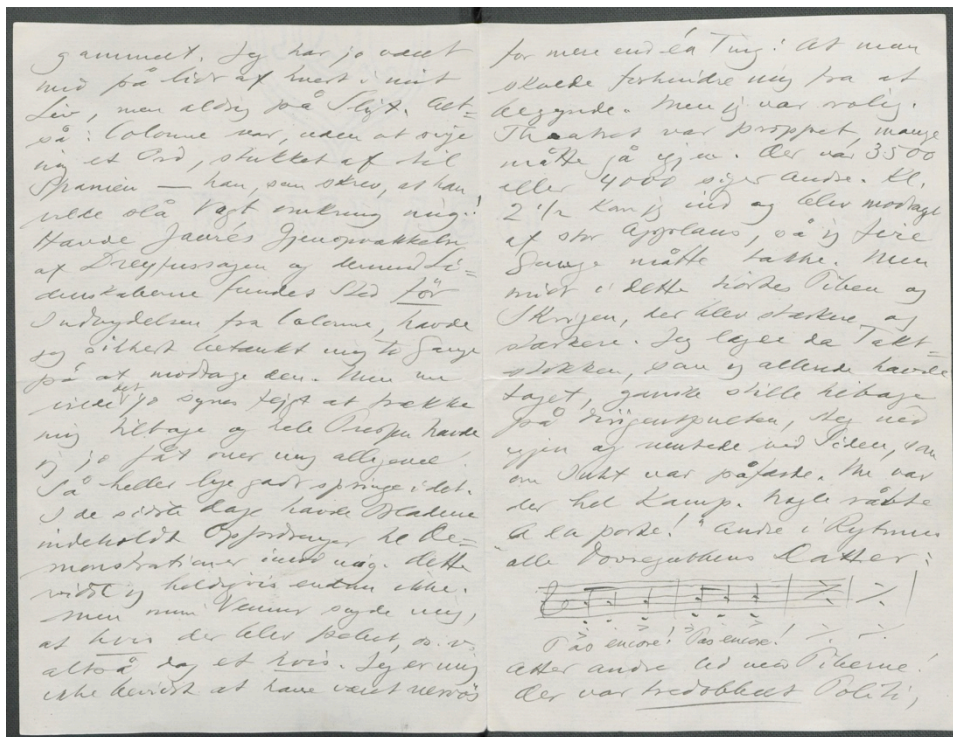 gammelt. Jeg har jo været
med på lidt af hvert i mit
Liv, men aldrig på Sligt. Alt=
så: Colonne var, uden at sige
mig et Ord, stukket af til
Spanien — han, som skrev, at han
vilde slå Vagt omkring mig!
Havde Jaurés Gjenopvækkelse
af Dreyfussagen og dermed Li=
denskaberne fundet Sted før
Indbydelsen fra Colonne, havde
jeg sikkert betænkt mig to Gange
på at modtage den. Men nu
vilde det jo synes fejgt at trække
mig tilbage og hele Pressen havde
jeg jo fåt over mig alligevel.
Så heller lige godt springe i det.
I de sidste Dage havde Bladene
indeholdt Opfordringer til De=
monstrationer imod mig. Dette
vidste jeg heldigvis endnu ikke.
Men mine Venner sagde mig,
at hvis der blev pebet, o.s.v.
altså dog et hvis. Jeg er mig
ikke bevidst at have været nervøs
for mere end én Ting: At man
skulde forhindre mig fra at
begynde. Men jeg var rolig.
Theatret var proppet, mange
måtte gå igjen. Der var 3500
eller 4000 siger Andre. Kl.
2 1/2 kom jeg ind og blev modtaget
af stor Applaus, så jeg fire
Gange måtte takke. Men
midt i dette hørtes Piben og
Skrigen, der blev stærkere og
stærkere. Jeg lagde da Takt=
stokken, som jeg allerede havde
taget, ganske stille tilbage
på Dirigentpulten, steg ned
igjen og ventede ved Siden, som
om Intet var påfærde. Nu var
der hel Kamp. Nogle råbte
"à la porte!" Andre i Rytmen
alle Dovregubbens Datter:
Pas encore! Pas encore!
atter andre led med Piberne!
Der var tredobbelt Politi,